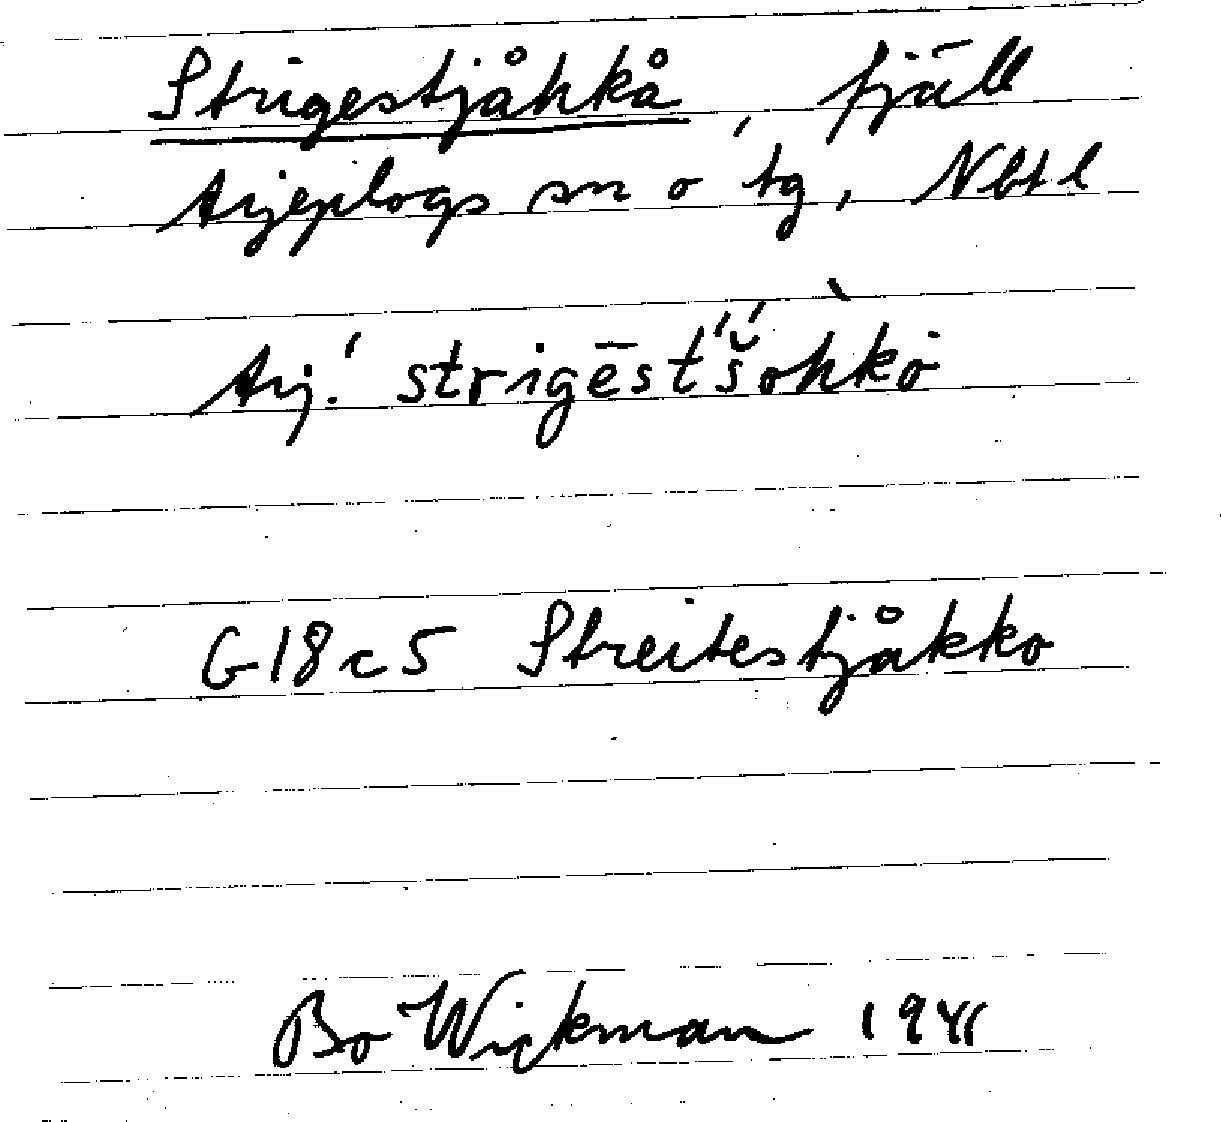 Strigestjåhkå, fjäll
Arjeplogs sn o tg, Nbtl
Arj. ́ strigēst́'š́ohkò
G18c5 Streitestjåkko
Bo Wickman 1941